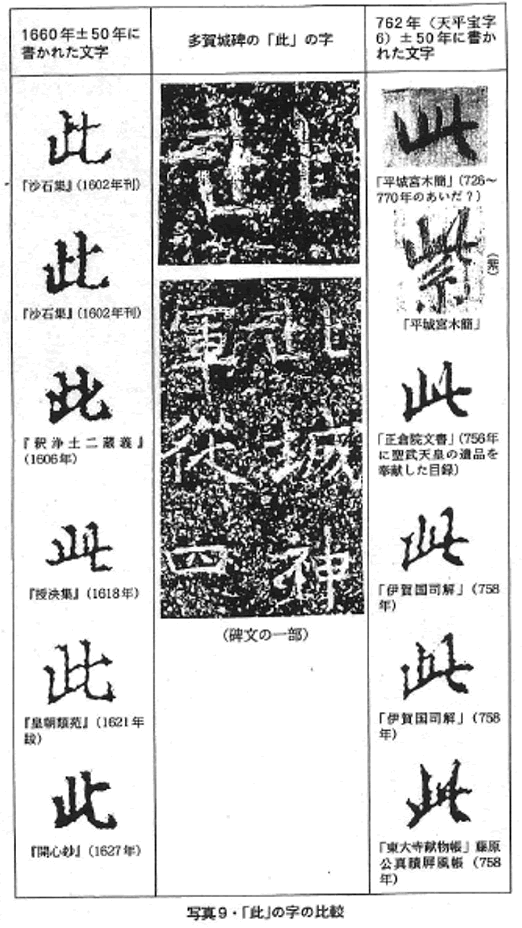 1660年±50年に
書かれた文字
此
『沙石集』(1602年刊)
此
『沙石集』(1602年刊)
此
『釈浄土二蔵義』
(1606年)
此
『授決集』(1618年)
此
『皇朝類苑』(1621年
跋)
此
『開心鈔』(1627年)
多賀城碑の「此」の字
此
軍此
從城
四神
(碑文の一部)
762年(天平宝字
6)±50年に書か
れた文字
此
「平城宮木簡」(726〜
770年のあいだ?)
紫
(紫)
「平城宮木簡」
此
「正倉院文書」(756年
に聖武天皇の遺品を
奉献した目録)
此
「伊賀国司解」(758
年)
此
「伊賀国司解」(758
年)
此
「東大寺献物帳」藤原
公真蹟屏風帳(758
年)
写真9・「此」の字の比較